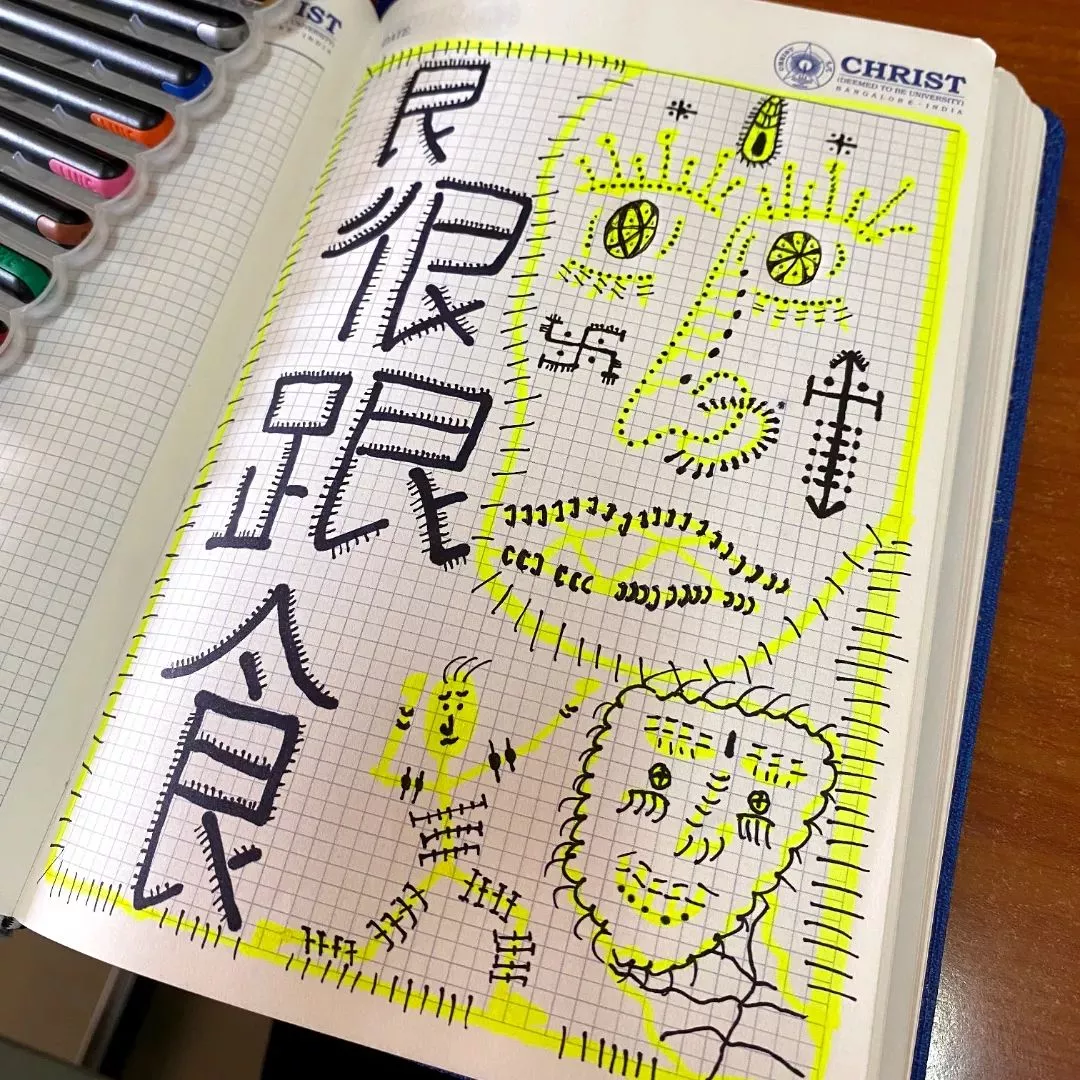 IST
UNIVERSITY)
INDIA
DATE
CHRIST
(DEEMED TO BE UNIVERSITY)
BANGALORE - INDIA
艮
很
跟
食